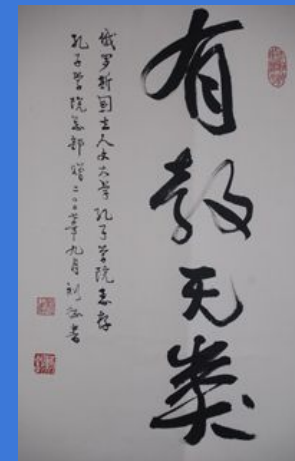 有教无类
俄罗斯国立人文大学孔子学院惠存
孔子学院总部赠二〇〇七年九月
书